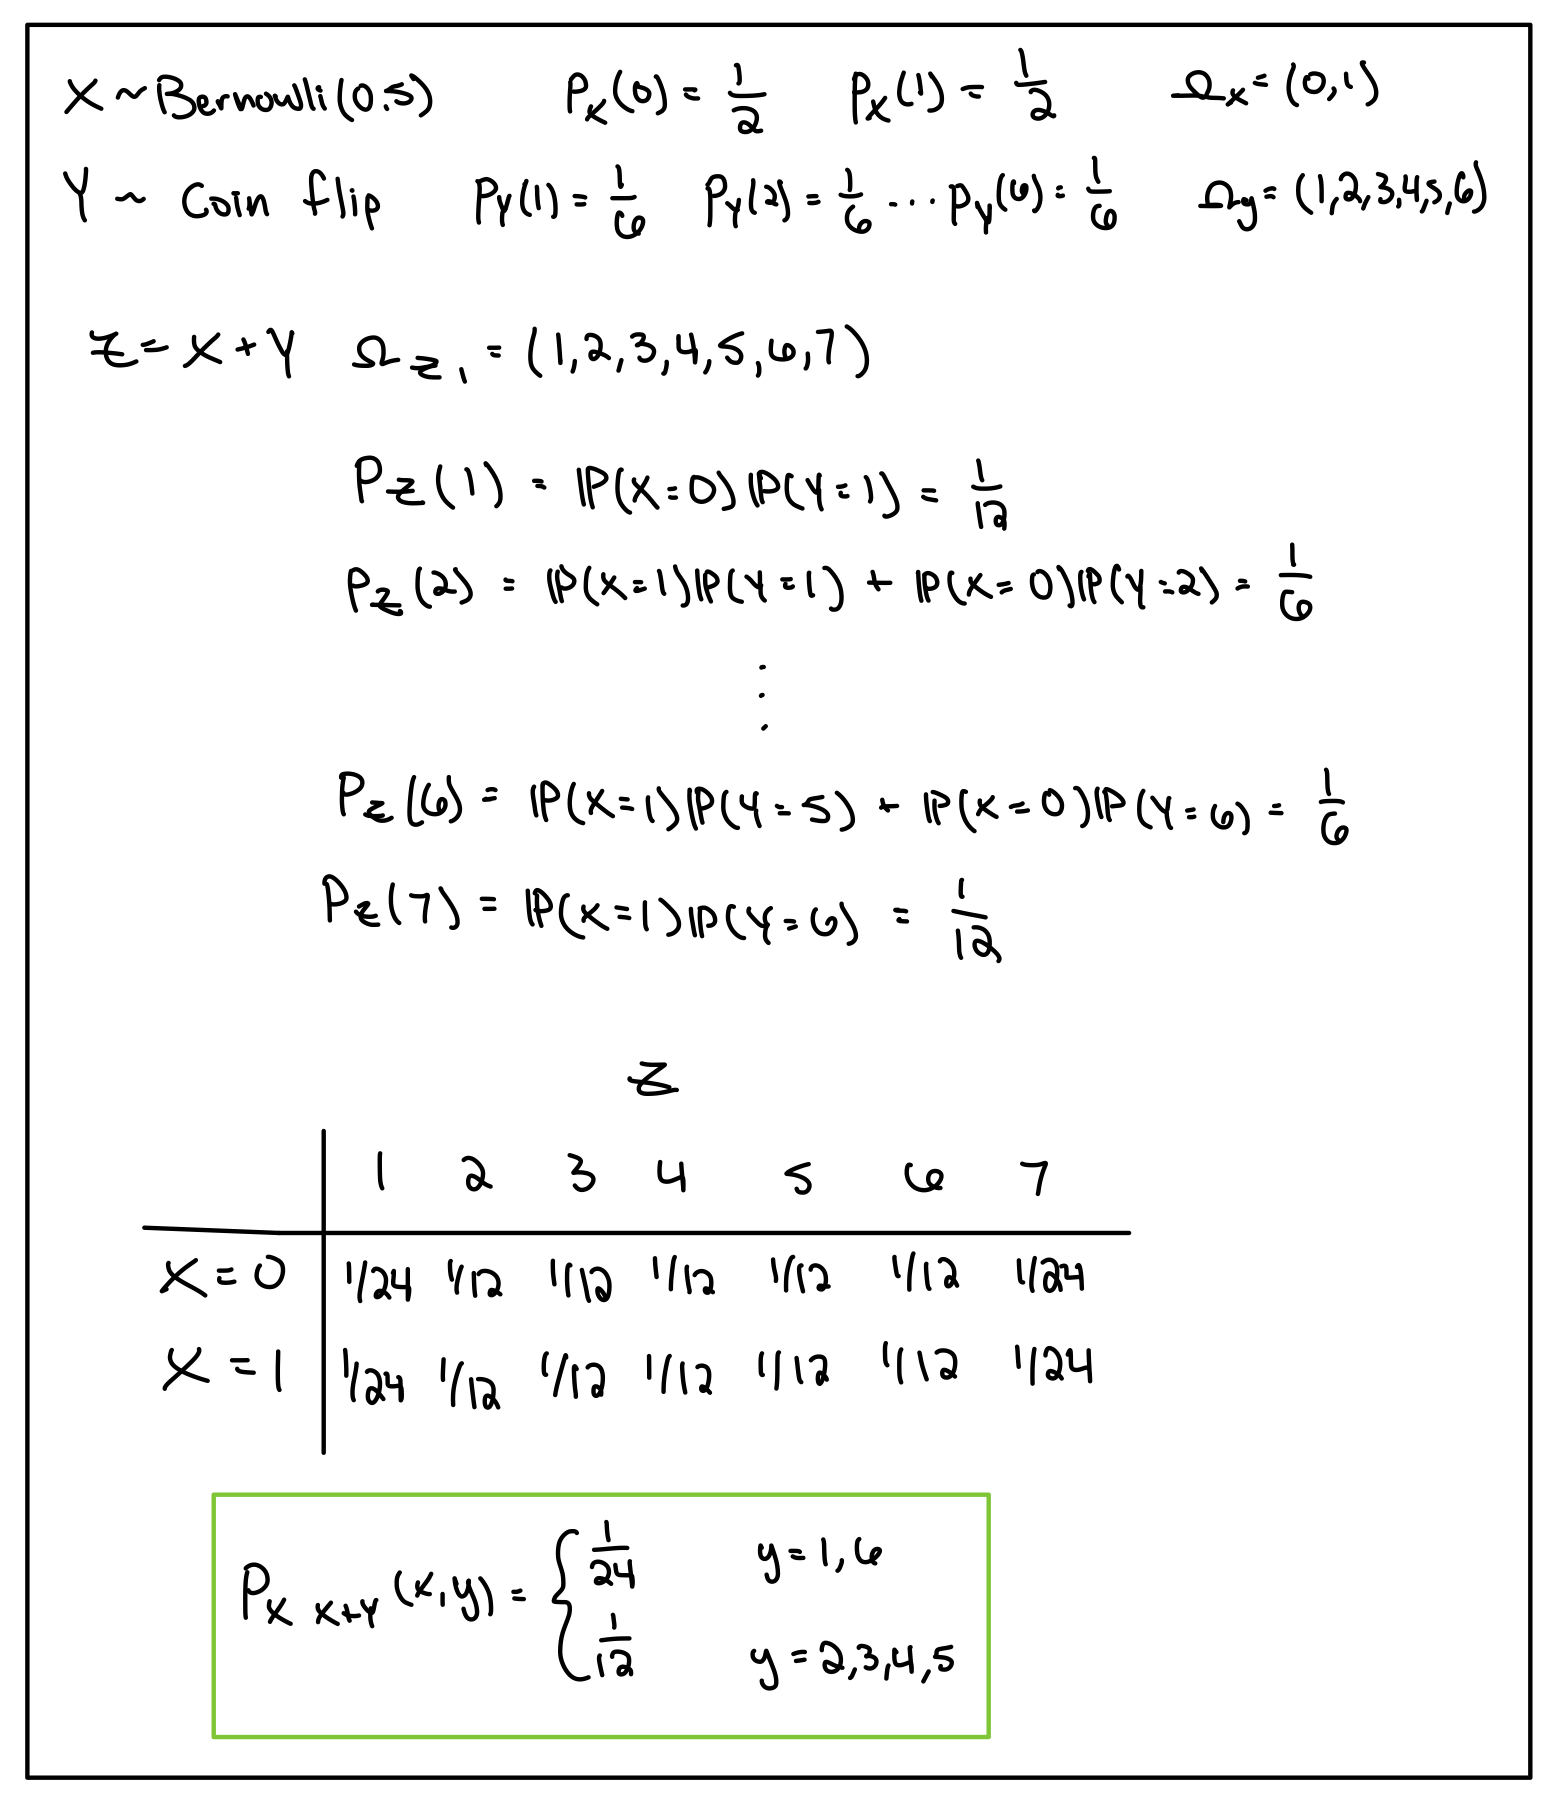 X ~ Bernoulli(0.5) P_X(0) = 1/2 P_X(1) = 1/2 Ω_X = (0,1)
Y ~ Coin flip P_Y(1) = 1/6 P_Y(2) = 1/6 ... P_Y(6) = 1/6 Ω_y = (1,2,3,4,5,6)
Z = X + Y Ω_Z, = (1,2,3,4,5,6,7)
P_Z(1) = ℙ(X=0)ℙ(Y=1) = 1/12
P_Z(2) = ℙ(X=1)ℙ(Y=1) + ℙ(X=0)ℙ(Y=2) = 1/6
⋮
P_Z(6) = ℙ(X=1)ℙ(Y=5) + ℙ(X=0)ℙ(Y=6) = 1/6
P_Z(7) = ℙ(X=1)ℙ(Y=6) = 1/12
Z
1 2 3 4 5 6 7
X=0 1/24 1/12 1/12 1/12 1/12 1/12 1/24
X=1 1/24 1/12 1/12 1/12 1/12 1/12 1/24
P_X X+Y (x,y) = { 1/24 y=1,6
1/12 y=2,3,4,5